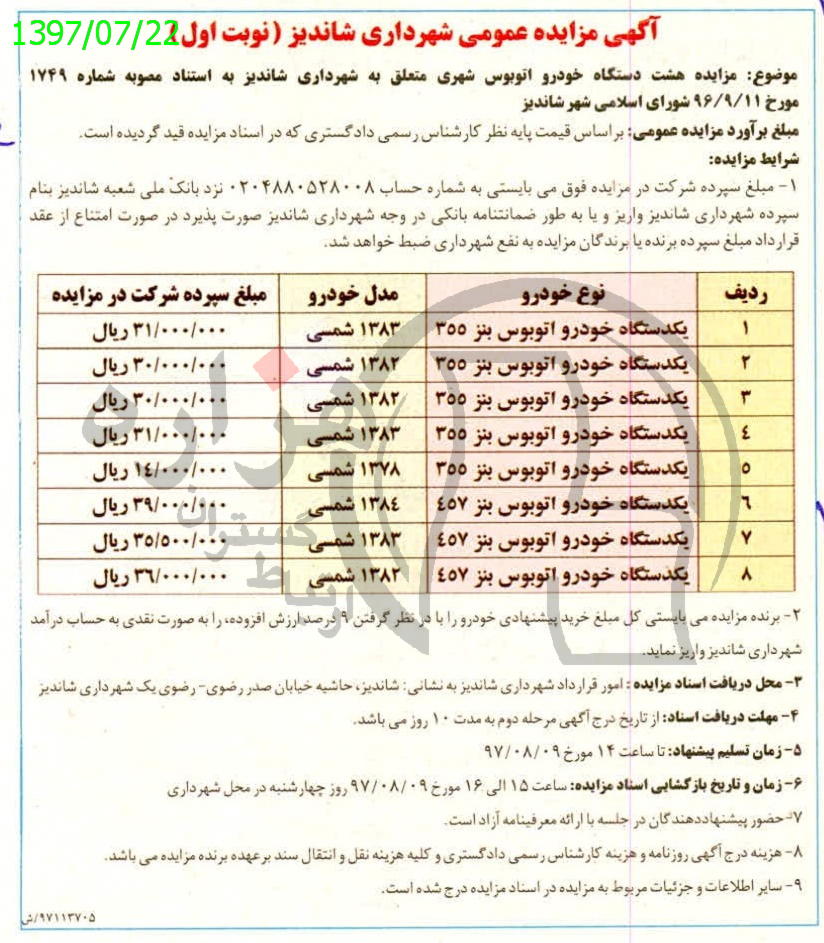 آگهی مزایده عمومی شهرداری شاندیز ( نوبت اول )
1397/07/22
موضوع: مزایده هشت دستگاه خودرو اتوبوس شهری متعلق به شهرداری شاندیز به استناد مصوبه شماره ۱۷۴۹
مورخ ۹۶/۹/۱۱ شورای اسلامی شهر شاندیز
مبلغ برآورد مزایده عمومی: براساس قیمت پایه نظر کارشناس رسمی دادگستری که در اسناد مزایده قید گردیده است.
شرایط مزایده:
۱- مبلغ سپرده شرکت در مزایده فوق می بایستی به شماره حساب ۰۲۰۴۸۸۰۵۲۸۰۰۸ نزد بانک ملی شعبه شاندیز بنام
سپرده شهرداری شاندیز واریز و یا به طور ضمانتنامه بانکی در وجه شهرداری شاندیز صورت پذیرد در صورت امتناع از عقد
قرارداد مبلغ سپرده برنده یا برندگان مزایده به نفع شهرداری ضبط خواهد شد.
ردیف نوع خودرو مدل خودرو مبلغ سپرده شرکت در مزایده
۱ یکدستگاه خودرو اتوبوس بنز ۳۵۵ ۱۳۸۳ شمسی ۳۱/۰۰۰/۰۰۰ ریال
۲ یکدستگاه خودرو اتوبوس بنز ۳۵۵ ۱۳۸۲ شمسی ۳۰/۰۰۰/۰۰۰ ریال
۳ یکدستگاه خودرو اتوبوس بنز ۳۵۵ ۱۳۸۲ شمسی ۳۰/۰۰۰/۰۰۰ ریال
٤ یکدستگاه خودرو اتوبوس بنز ۳۵۵ ۱۳۸۳ شمسی ۳۱/۰۰۰/۰۰۰ ریال
۵ یکدستگاه خودرو اتوبوس بنز ۳۵۵ ۱۳۷۸ شمسی ۱٤/۰۰۰/۰۰۰ ریال
٦ یکدستگاه خودرو اتوبوس بنز ٤۵۷ ۱۳۸٤ شمسی ۳۹/۰۰۰/۰۰۰ ریال
۷ یکدستگاه خودرو اتوبوس بنز ٤۵۷ ۱۳۸۳ شمسی ۳۵/۵۰۰/۰۰۰ ریال
۸ یکدستگاه خودرو اتوبوس بنز ٤۵۷ ۱۳۸۲ شمسی ۳٦/۰۰۰/۰۰۰ ریال
هزاره
گستران
ارتباط
۲- برنده مزایده می بایستی کل مبلغ خرید پیشنهادی خودرو را با در نظر گرفتن ۹ درصد ارزش افزوده، را به صورت نقدی به حساب درآمد
شهرداری شاندیز واریز نماید.
۳- محل دریافت اسناد مزایده : امور قرارداد شهرداری شاندیز به نشانی: شاندیز، حاشیه خیابان صدر رضوی- رضوی یک شهرداری شاندیز
۴- مهلت دریافت اسناد: از تاریخ درج آگهی مرحله دوم به مدت ۱۰ روز می باشد.
۵- زمان تسلیم پیشنهاد: تا ساعت ۱۴ مورخ ۹۷/۰۸/۰۹
۶- زمان و تاریخ بازگشایی اسناد مزایده: ساعت ۱۵ الی ۱۶ مورخ ۹۷/۰۸/۰۹ روز چهارشنبه در محل شهرداری
۷- حضور پیشنهاددهندگان در جلسه با ارائه معرفینامه آزاد است.
۸- هزینه درج آگهی روزنامه و هزینه کارشناس رسمی دادگستری و کلیه هزینه نقل و انتقال سند برعهده برنده مزایده می باشد.
۹- سایر اطلاعات و جزئیات مربوط به مزایده در اسناد مزایده درج شده است.
۹۷۱۱۳۷۰۵/ش